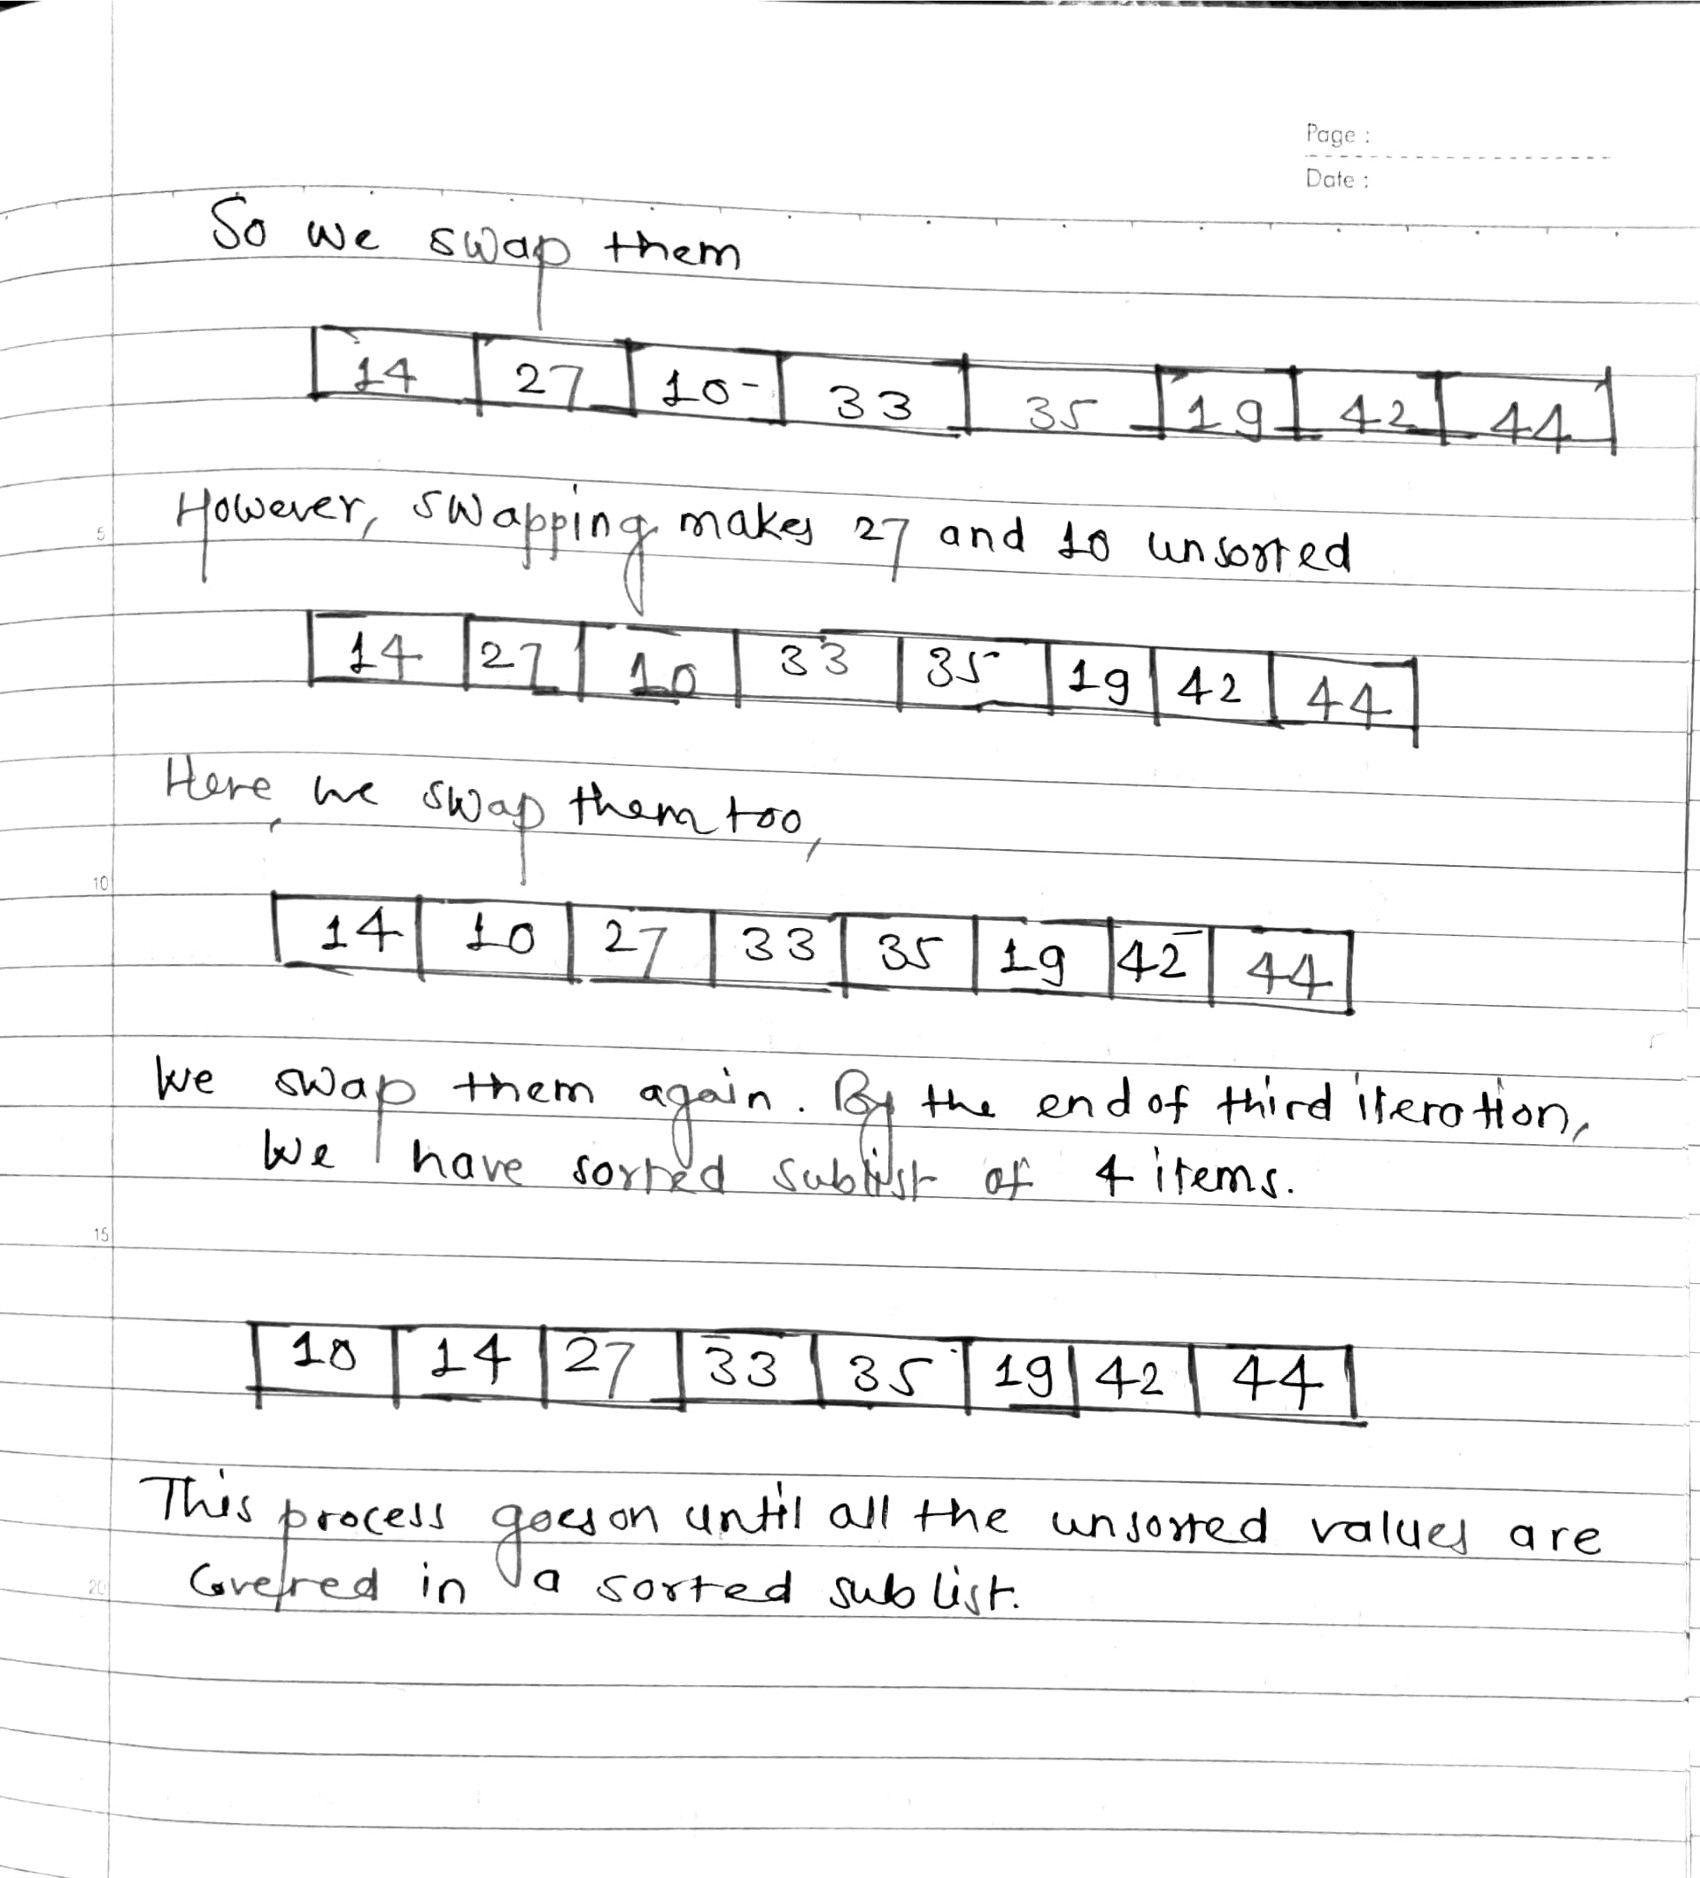 Page :
Date :
So we swap them
14 27 10 33 35 19 42 44
However, swapping makes 27 and 10 unsorted
5
14 27 10 33 35 19 42 44
Here, we swap them too,
10
14 10 27 33 35 19 42 44
We swap them again. By the end of third iteration,
we have sorted sublist of 4 items.
15
10 14 27 33 35 19 42 44
This process goes on until all the unsorted values are
20 Covered in a sorted sublist.